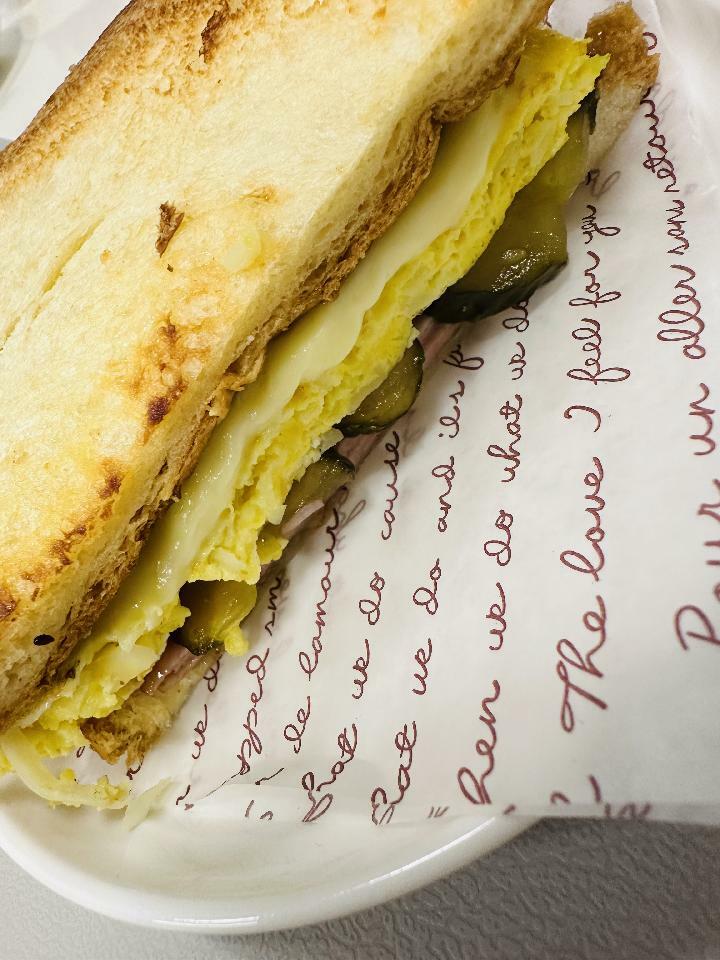 Pour un aller sans retour
The love I feel for you
hen we do what we do
hat we do and its f
hat we do cause
de lamour
pped sm
we d